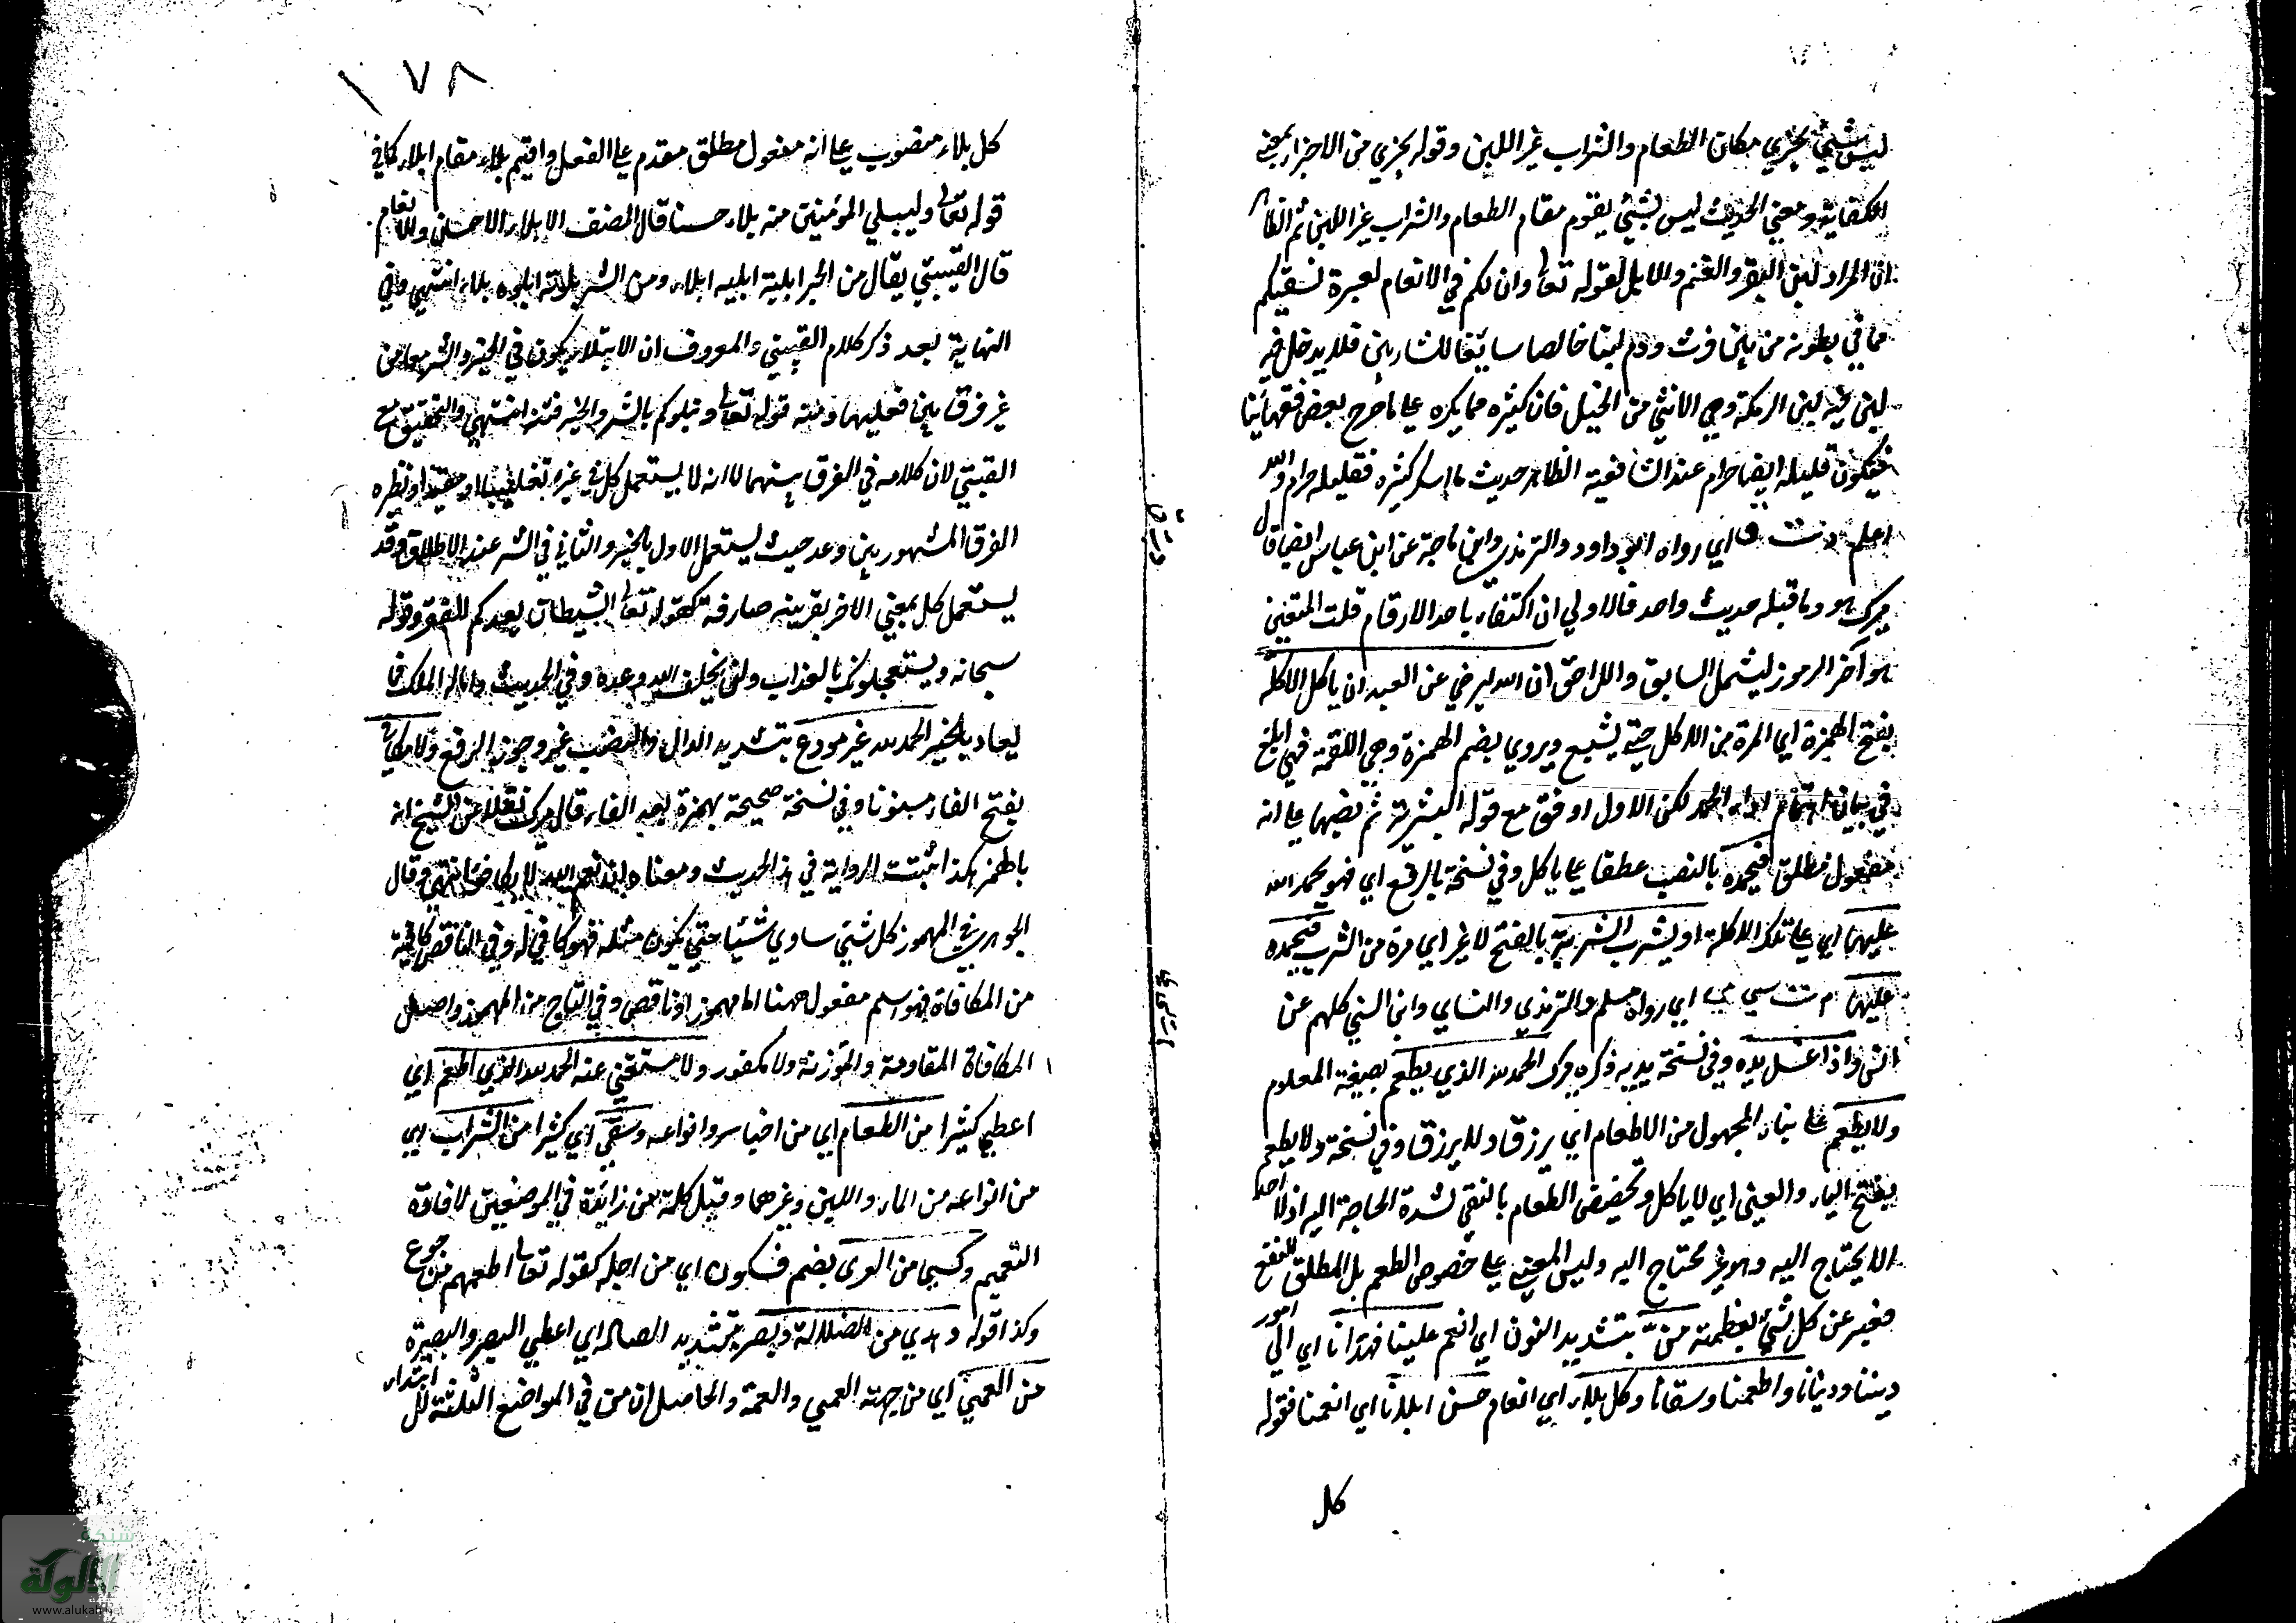 ليس شيئ يجزي مكان الطعام والشراب غير اللبن وقوله يجزي من الاجزاء بمعنى
الكفاية ومعنى الحديث ليس شيئ يقوم مقام الطعام والشراب غير اللبن ثم الظاهر
ان المراد لبن البقر والغنم والابل لقوله تعا وان لكم في الانعام لعبرة نسقيكم
مما في بطونه من بين فرث ودم لبنا خالصا سائغا للشاربين فلا يدخل فيه
لبن غيره لبن الرمكة وهي الانثى من الخيل فان كثيره مما يكره على ما صرح بعض فقهائنا
فيكون قليله ايضا حرام عند الشافعية الظاهر حديث ما اسكر كثيره فقليله حرام والله
اعلم د ت ق اي رواه ابو داود والترمذي وابن ماجة عن ابن عباس ايضا قال
ميرك هو وما قبله حديث واحد فالاولى ان اكتفاء باحد الارقام قلت المتعين
هو آخر الرموز ليشمل السابق واللاحق ان الله ليرضي عن العبد ان ياكل الاكلة
بفتح الهمزة اي المرة من الاكل حتى يشبع ويروي بضم الهمزة وهي اللقمة فهي ابلغ
في بيان اهتمام اداء الحمد لكن الاول اوفق مع قوله الشربة ثم نصبها على انه
مفعول مطلق فيحمده بالنصب عطفا على ياكل وفي نسخة بالرفع اي فهو يحمد الله
عليها اي على تلك الاكلة او يشرب الشربة بالفتح لا غير اي مرة من الشرب فيحمده
عليها م ت س ي اي رواه مسلم والترمذي والنساي وابن السني كلهم عن
انس واذا غسل يده وفي نسخة يديه ذكره ميرك الحمد لله الذي يطعم بصيغة المعلوم
ولا يطعم على بناء المجهول من الاطعام اي يرزق ولا يرزق وفي نسخة ولا يطعم
بفتح الياء والعين اي لا ياكل وتخصيص الطعام بالنفي لشدة الحاجة اليه اذ لا احد
الا يحتاج اليه وهو غير محتاج اليه وليس المعنى على خصوص الطعم بل المطلق النفع
فعبر عن كل شيئ بعظمته منّ بتشديد النون اي انعم علينا فهدانا اي الى امور
ديننا ودنيانا واطعمنا وسقانا وكل بلاء اي انعام حسن ابلانا اي انعمنا فقوله
كل
١٧٨
كل بلاء منصوب على انه مفعول مطلق مقدم على الفعل واقيم بلاء مقام ابلاء كما في
قوله تعالى وليبلي المؤمنين منه بلاء حسنا قال المصنف الابلاء الاحسان والانعام
قال القتيبي يقال من الخير ابليته ابليه ابلاء ومن الشر بلوته ابلوه بلاء انتهى وفي
النهاية بعد ذكر كلام القتيبي والمعروف ان الابتلاء يكون في الخير والشر معا من
غير فرق بين فعليهما ومنه قوله تعا ونبلوكم بالشر والخير فتنة انتهى والتحقيق مع
القتيبي لان كلامه في الفرق بينهما لا انه لا يستعمل كل في غيره تغليبا او مقيدا ونظيره
الفرق المشهور بين وعد حيث يستعمل الاول بالخير والثاني في الشر عند الاطلاق وقد
يستعمل كل بمعنى الاخر بقرينة صارفة كقوله تعا الشيطان يعدكم الفقر وقوله
سبحانه ويستعجلونك بالعذاب ولن يخلف الله وعده وفي الحديث واما لمة الملك فا
يعاد بالخير الحمد لله غير مودع بتشديد الدال والنصب غير وجوز الرفع ولا مكافا
بفتح الفاء منونا وفي نسخة صحيحة بهمزة بعد الفاء قال ميرك نقلا عن الشيخ انه
بالهمز هكذا ثبتت الرواية في هذا الحديث ومعناه ان نعم الله لا يكافئ انتهى وقال
الجوهري في المهموز كل شيئ ساوي شيئا حتى يكون مثله فهو مكافي له وفي الناقص كافية
من المكافاة فهو اسم مفعول ههنا اما مهموز او ناقص وفي التاج من المهموز واصل
المكافاة المقاومة والموزنة ولا مكفور ولا مستغني عنه الحمد لله الذي اطعم اي
اعطي كثيرا من الطعام اي من اجناسه وانواعه وسقي اي كثيرا من الشراب اي
من انواعه من الماء واللبن وغيرهما وقيل كلمة من زائدة في الموضعين لافادة
التعميم وكسي من العري بضم فسكون اي من اجله كقوله تعالى اطعمهم من جوع
وكذا قوله وهدي من الضلالة وبصر بتشديد الصاد اي اعطي البصر والبصيرة
من العمي اي من جهته العمي والعمة والحاصل ان من في المواضع الثلثة للابتداء
شبكة
الألوكة
www.alukah.net